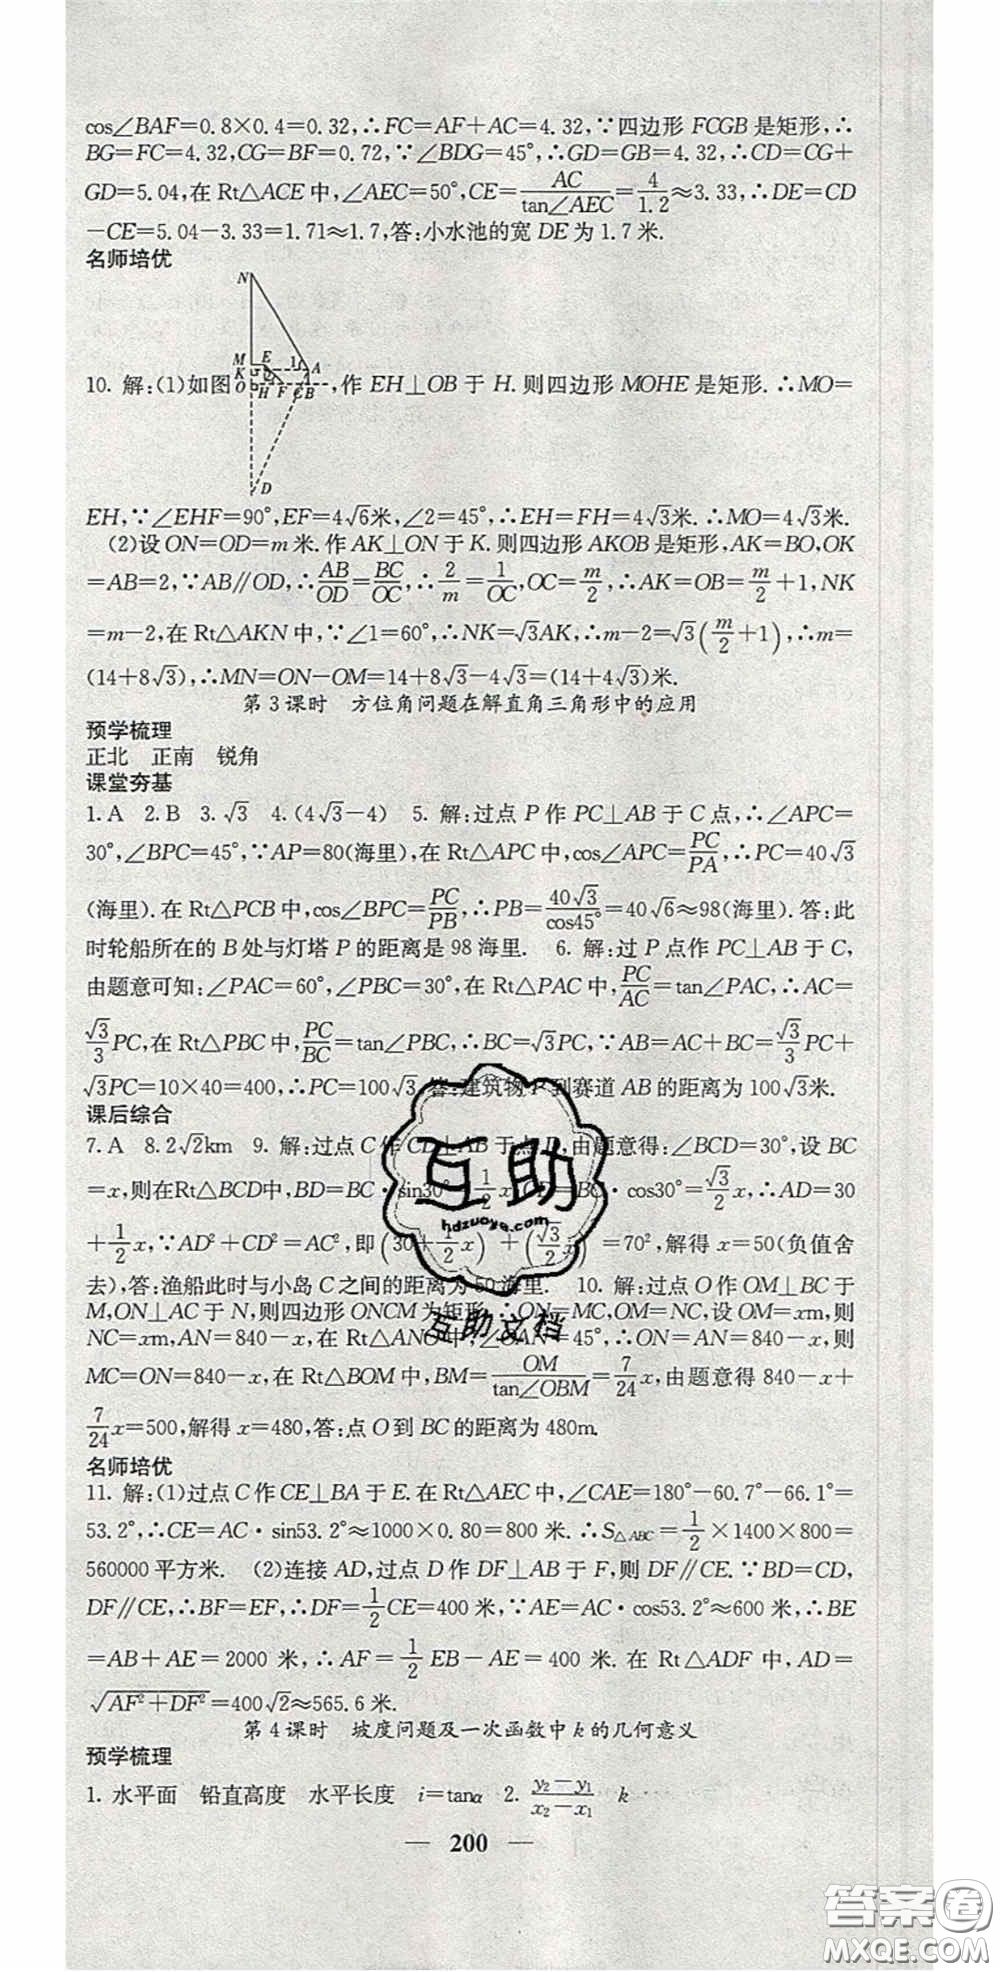 cos∠BAF=0.8×0.4=0.32,∴FC=AF+AC=4.32,∵四边形 FCGB 是矩形,∴
BG=FC=4.32,CG=BF=0.72,∵∠BDG=45°,∴GD=GB=4.32,∴CD=CG+
GD=5.04,在 Rt△ACE 中,∠AEC=50°,CE=AC/tan∠AEC=4/1.2≈3.33,∴DE=CD
-CE=5.04-3.33=1.71≈1.7,答:小水池的宽 DE 为 1.7 米.
名师培优
N
M E 1 A
K
O H F C B
D
10. 解:(1)如图,作 EH⊥OB 于 H.则四边形 MOHE 是矩形.∴MO=
EH,∵∠EHF=90°,EF=4√6米,∠2=45°,∴EH=FH=4√3米.∴MO=4√3米.
(2)设 ON=OD=m 米.作 AK⊥ON 于 K.则四边形 AKOB 是矩形,AK=BO,OK
=AB=2,∵AB∥OD,∴AB/OD=BC/OC,∴2/m=1/OC,OC=m/2,∴AK=OB=m/2+1,NK
=m-2,在 Rt△AKN 中,∵∠1=60°,∴NK=√3AK,∴m-2=√3(m/2+1),∴m=
(14+8√3),∴MN=ON-OM=14+8√3-4√3=(14+4√3)米.
第 3 课时 方位角问题在解直角三角形中的应用
预学梳理
正北 正南 锐角
课堂夯基
1.A 2.B 3.√3 4.(4√3-4) 5. 解:过点 P 作 PC⊥AB 于 C 点,∴∠APC=
30°,∠BPC=45°,∵AP=80(海里),在 Rt△APC 中,cos∠APC=PC/PA,∴PC=40√3
(海里).在 Rt△PCB 中,cos∠BPC=PC/PB,∴PB=40√3/cos45°=40√6≈98(海里).答:此
时轮船所在的 B 处与灯塔 P 的距离是 98 海里. 6. 解:过 P 点作 PC⊥AB 于 C,
由题意可知:∠PAC=60°,∠PBC=30°,在 Rt△PAC 中,PC/AC=tan∠PAC,∴AC=
√3/3PC,在 Rt△PBC 中,PC/BC=tan∠PBC,∴BC=√3PC,∵AB=AC+BC=√3/3PC+
√3PC=10×40=400,∴PC=100√3,答:建筑物 P 到赛道 AB 的距离为 100√3米.
课后综合
7.A 8.2√2km 9. 解:过点 C 作 CD⊥AB 于点 D,由题意得:∠BCD=30°,设 BC
=x,则在Rt△BCD中,BD=BC·sin30°=1/2x,CD=BC·cos30°=√3/2x,∴AD=30
+1/2x,∵AD²+CD²=AC²,即(30+1/2x)²+(√3/2x)²=70²,解得 x=50(负值舍
去),答:渔船此时与小岛 C 之间的距离为 50 海里. 10. 解:过点 O 作 OM⊥BC 于
M,ON⊥AC 于 N,则四边形 ONCM 为矩形,∴ON=MC,OM=NC,设 OM=xm,则
NC=xm,AN=840-x,在 Rt△ANO 中,∠OAN=45°,∴ON=AN=840-x,则
MC=ON=840-x,在 Rt△BOM 中,BM=OM/tan∠OBM=7/24x,由题意得 840-x+
7/24x=500,解得 x=480,答:点 O 到 BC 的距离为 480m.
名师培优
11. 解:(1)过点 C 作 CE⊥BA 于 E.在 Rt△AEC 中,∠CAE=180°-60.7°-66.1°=
53.2°,∴CE=AC·sin53.2°≈1000×0.80=800 米.∴S△ABC=1/2×1400×800=
560000 平方米. (2)连接 AD,过点 D 作 DF⊥AB 于 F,则 DF∥CE.∵BD=CD,
DF∥CE,∴BF=EF,∴DF=1/2CE=400 米,∵AE=AC·cos53.2°≈600 米,∴BE
=AB+AE=2000 米,∴AF=1/2EB-AE=400 米.在 Rt△ADF 中,AD=
√(AF²+DF²)=400√2≈565.6 米.
第 4 课时 坡度问题及一次函数中 k 的几何意义
预学梳理
1. 水平面 铅直高度 水平长度 i=tanα 2. (y₂-y₁)/(x₂-x₁) k
— 200 —
互助
hdzuoye.com
互助文档
答案卷
MXQE.COM